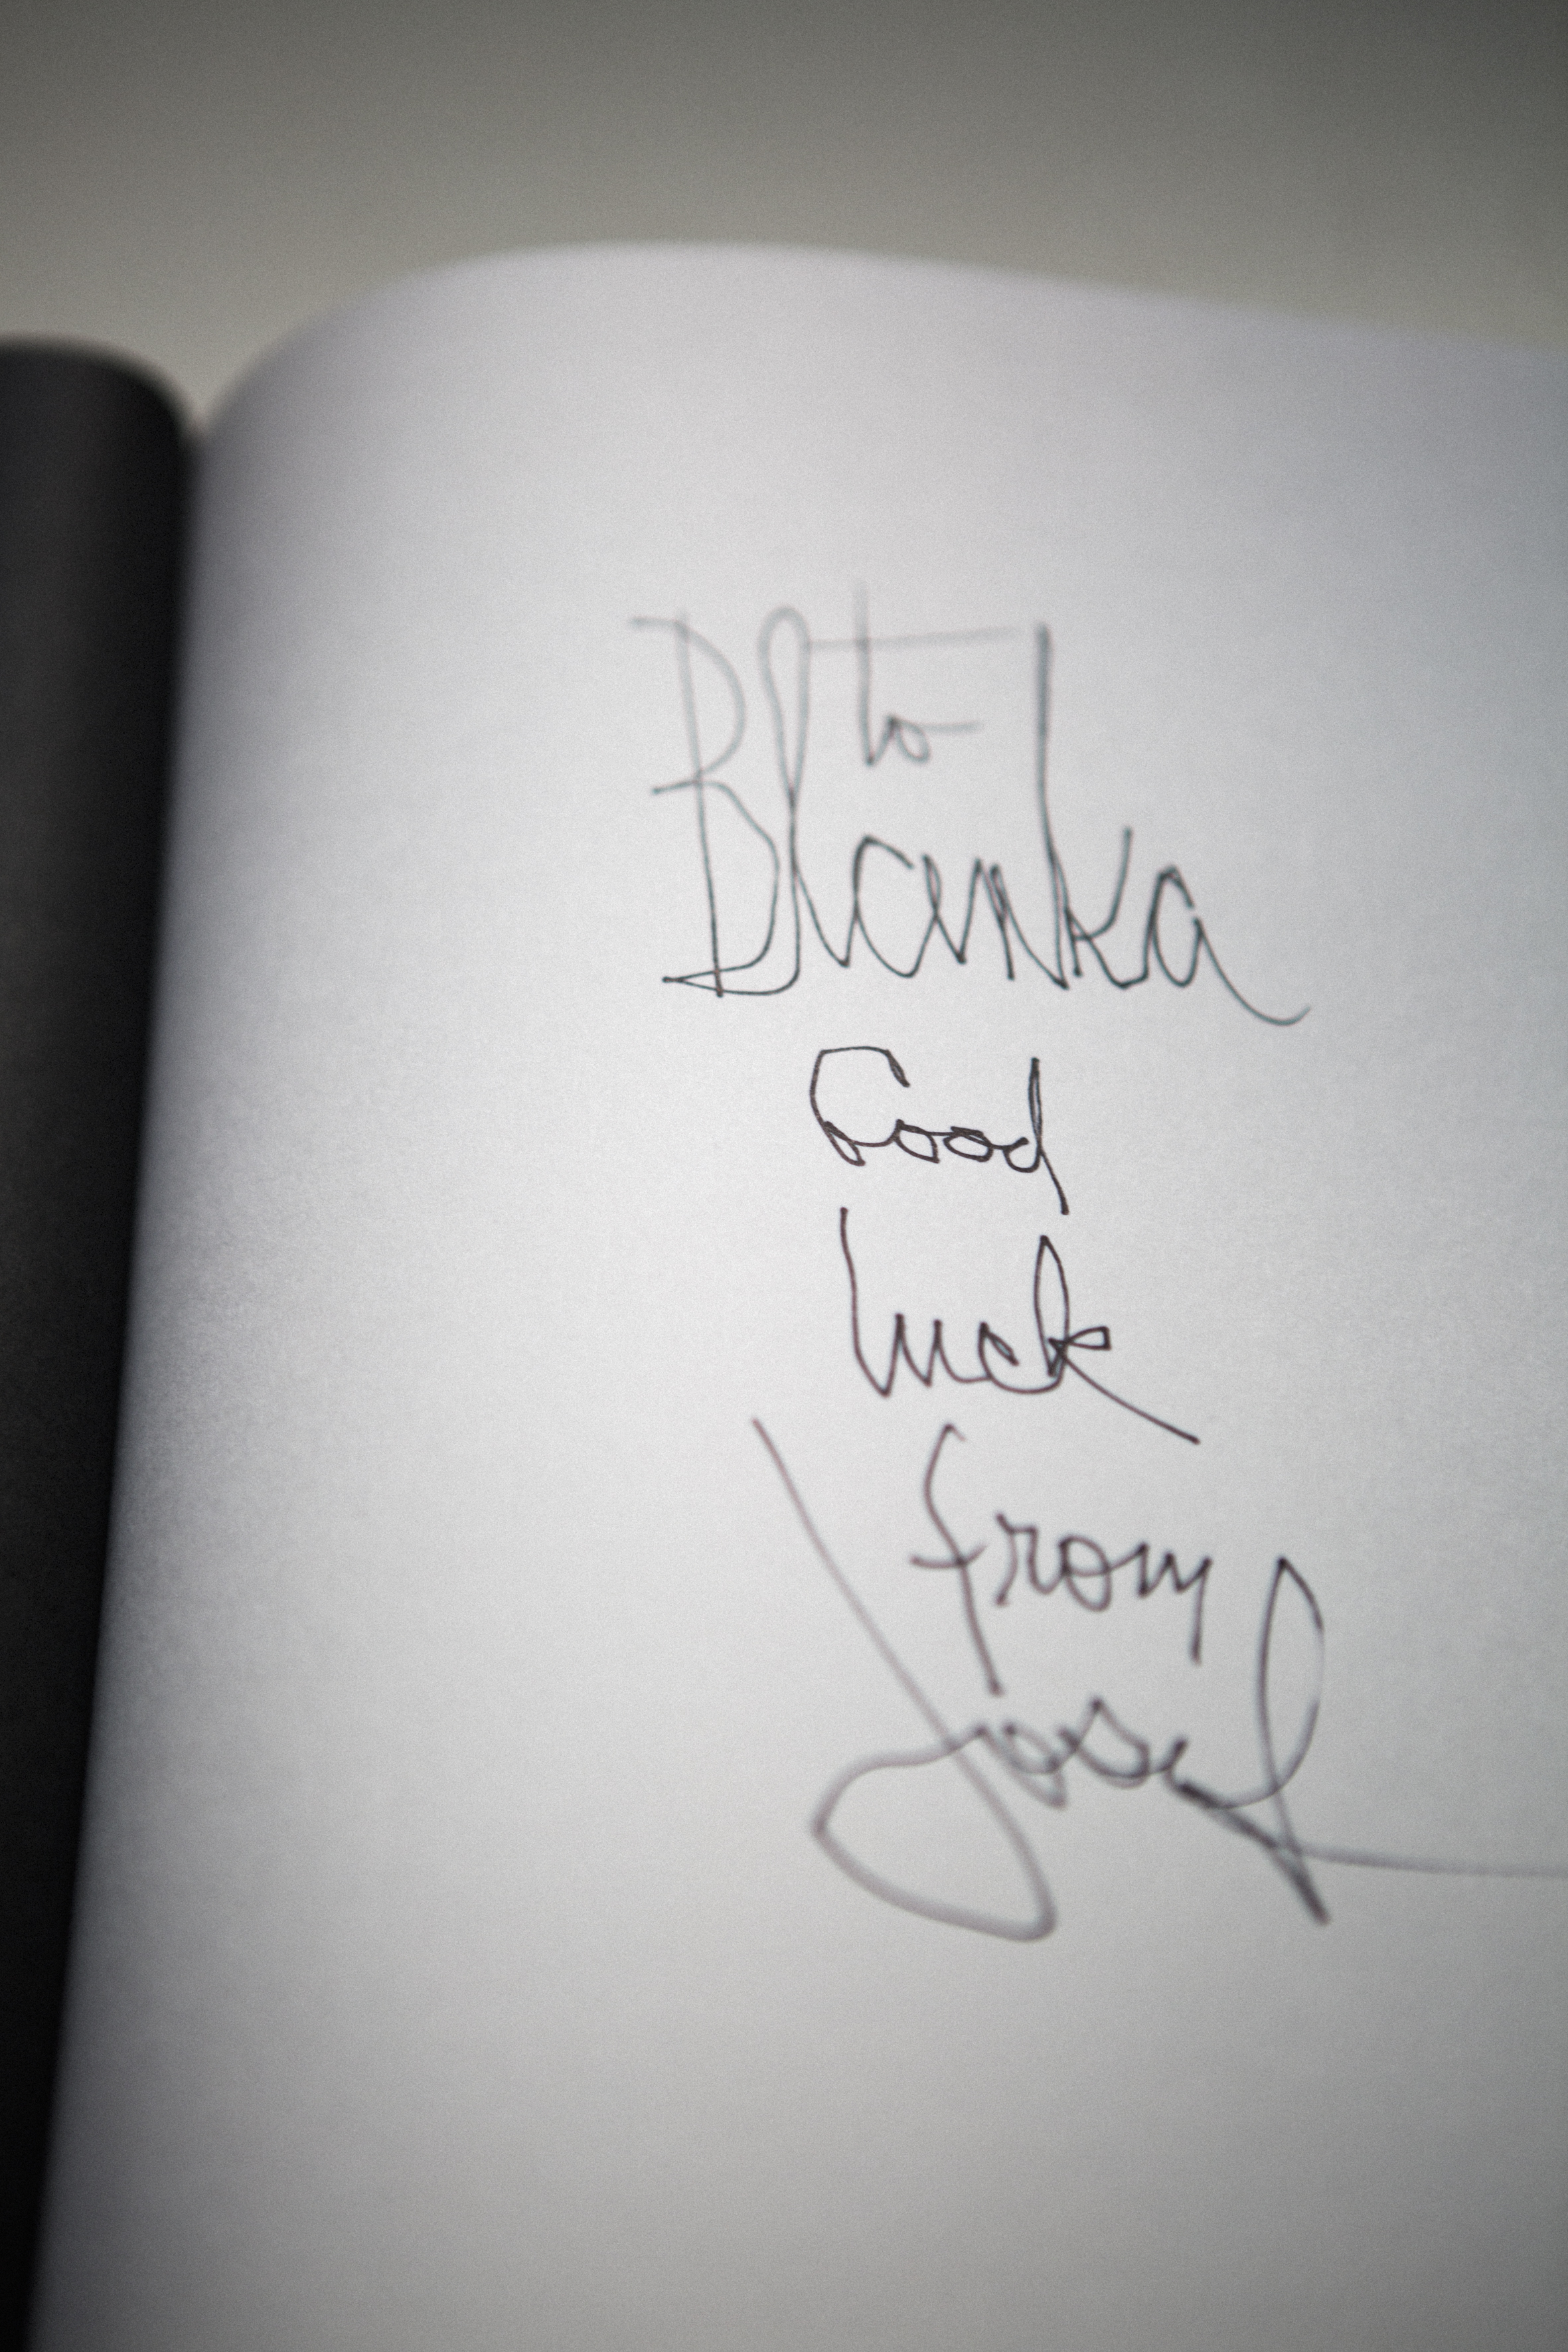 to
Blanka
Good
luck
from
Josef